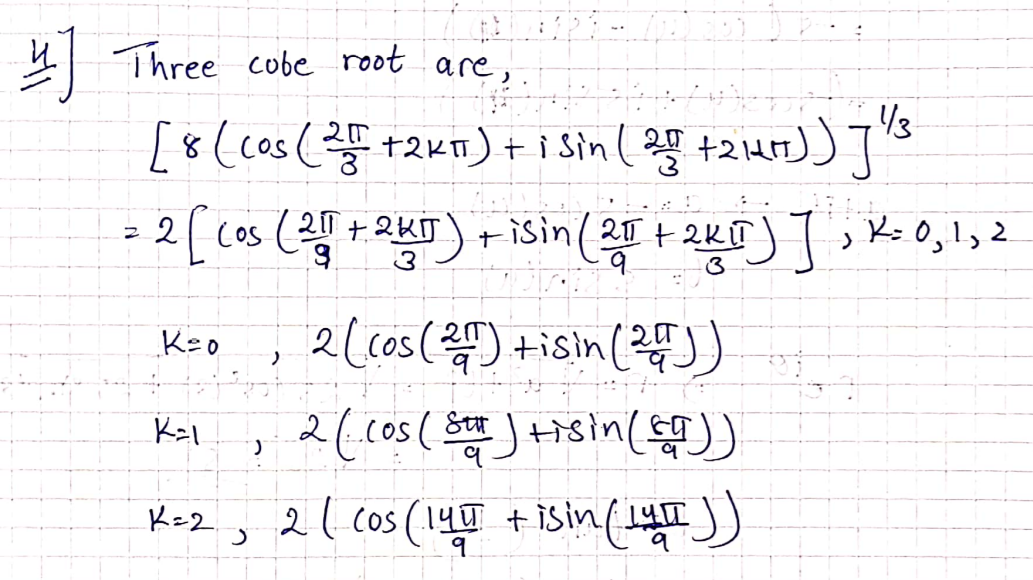 4] Three cube root are,
[8(cos(2π/3 + 2kπ) + i sin(2π/3 + 2kπ))]^1/3
= 2[cos(2π/9 + 2kπ/3) + isin(2π/9 + 2kπ/3)], K=0,1,2
K=0, 2(cos(2π/9) + isin(2π/9))
K=1, 2(cos(8π/9) + isin(8π/9))
K=2, 2(cos(14π/9 + isin(14π/9))